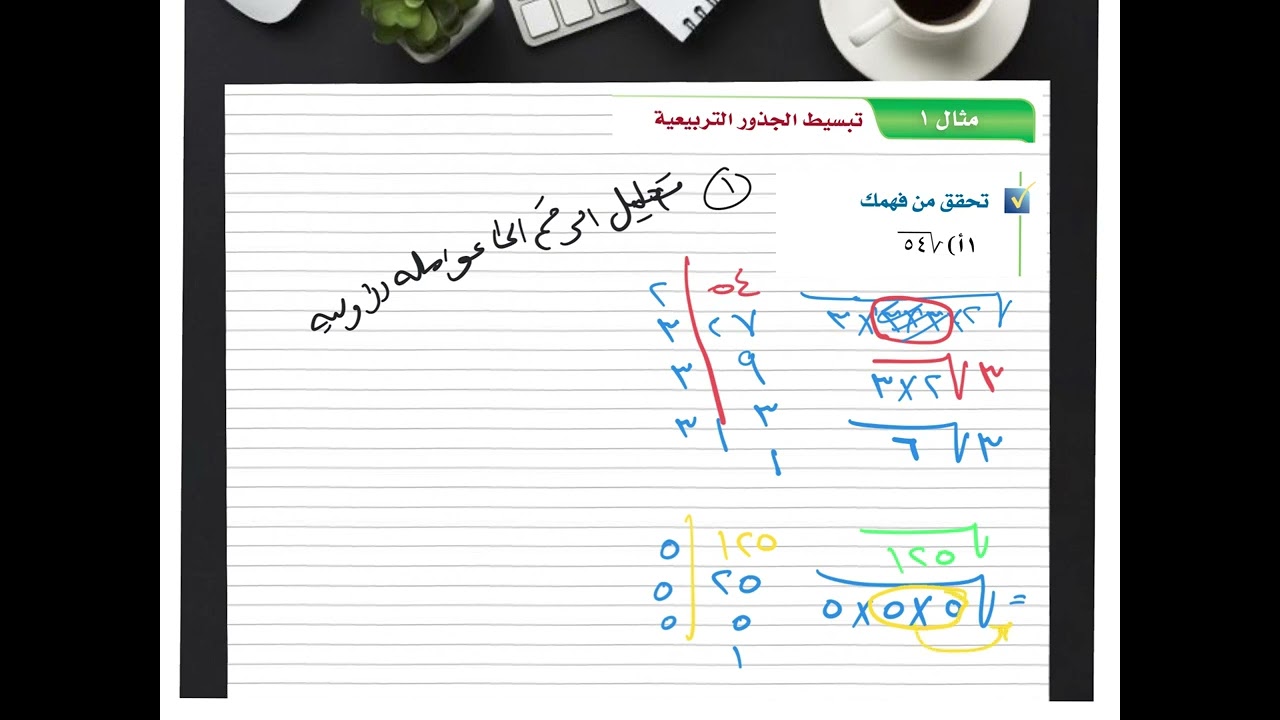 مثال ١ تبسيط الجذور التربيعية
تحقق من فهمك
١أ) √٥٤
① تحليل الرقم الى عوامله الأوليه
٥٤ | ٢
٢٧ | ٣
٩ | ٣
٣ | ٣
١
√٢×٣×٣×٣
٣√٢×٣
٣√٦
√١٢٥
= √٥×٥×٥
١٢٥ | ٥
٢٥ | ٥
٥ | ٥
١